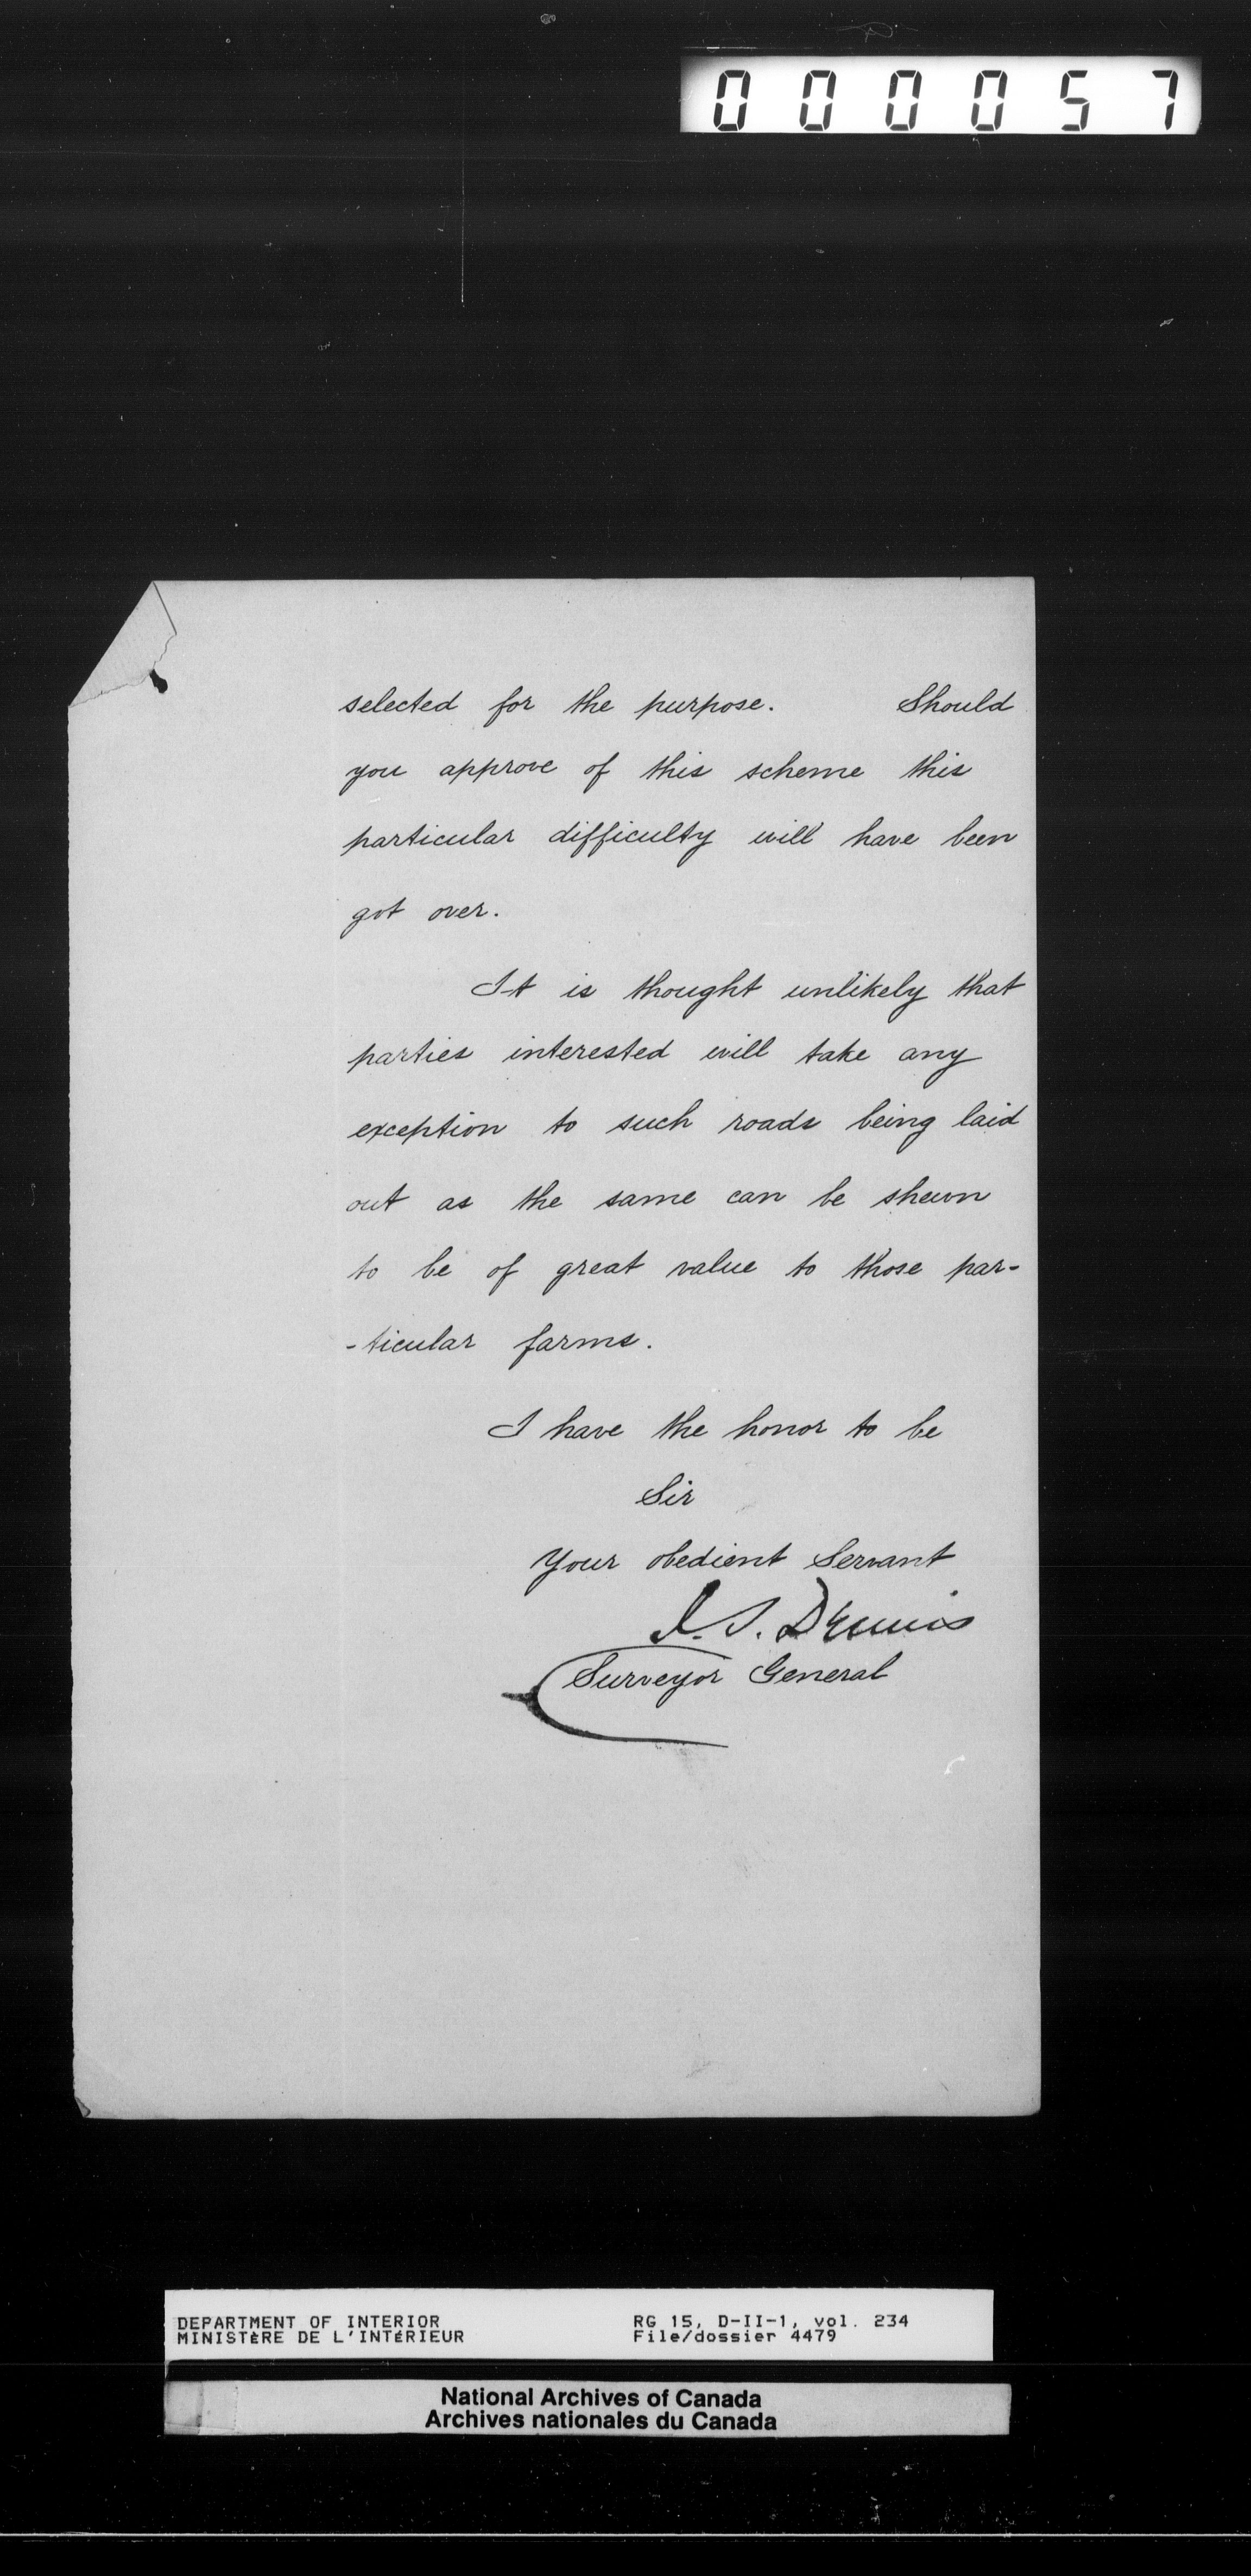 000057
selected for the purpose. Should
you approve of this scheme this
particular difficulty will have been
got over.
It is thought unlikely that
parties interested will take any
exception to such roads being laid
out as the same can be shewn
to be of great value to those par-
-ticular farms.
I have the honor to be
Sir
Your obedient Servant
J. S. Dennis
Surveyor General
DEPARTMENT OF INTERIOR RG 15, D-II-1, vol. 234
MINISTÈRE DE L'INTÉRIEUR File/dossier 4479
National Archives of Canada
Archives nationales du Canada